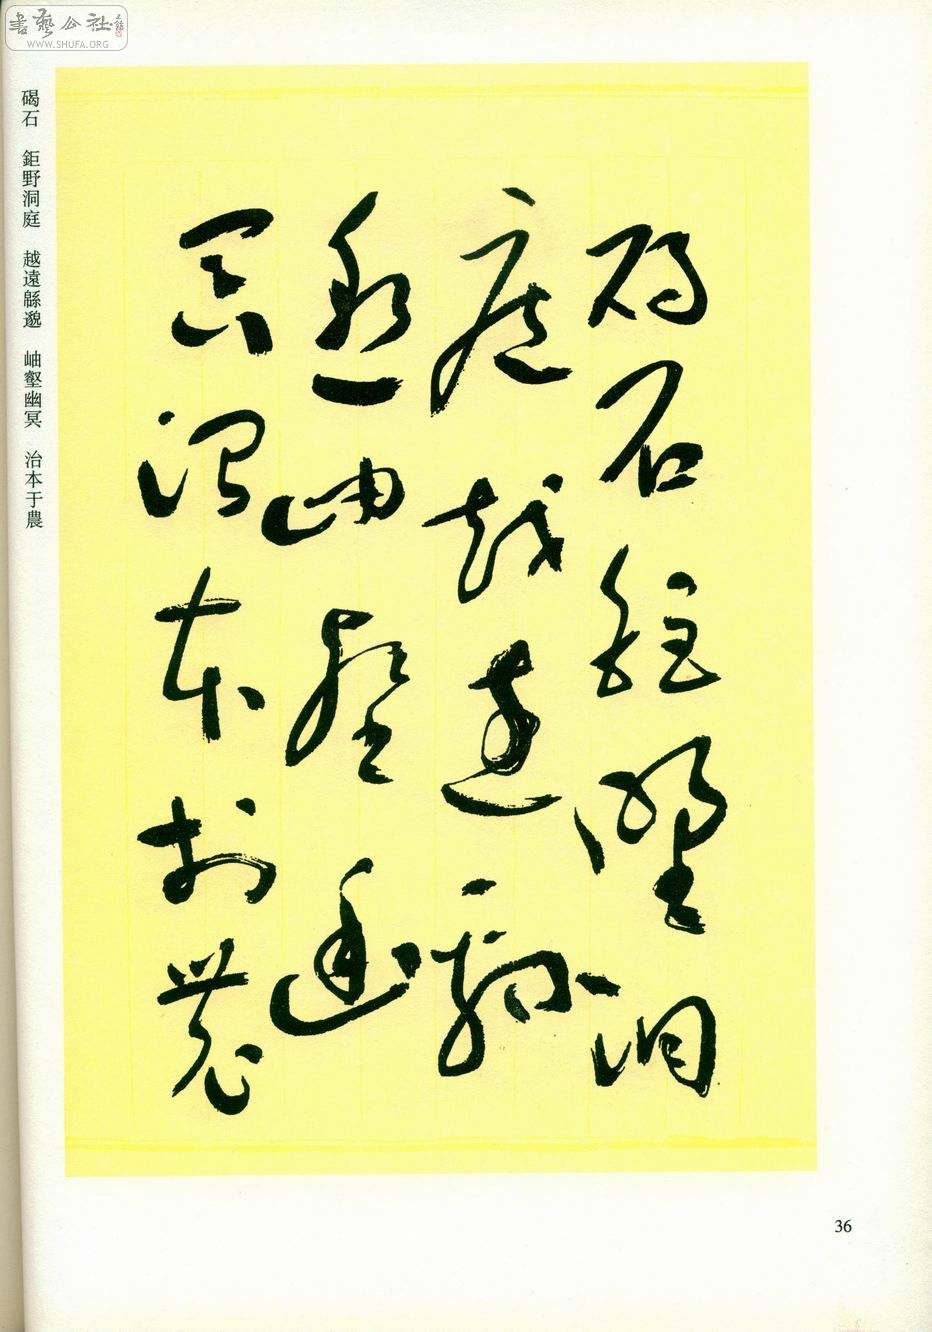 書藝公社
WWW.SHUFA.ORG
碣石鉅野洞
庭越遠緜
邈岫壑幽
冥治本於農
碣石　鉅野洞庭　越遠緜邈　岫壑幽冥　治本于農
36